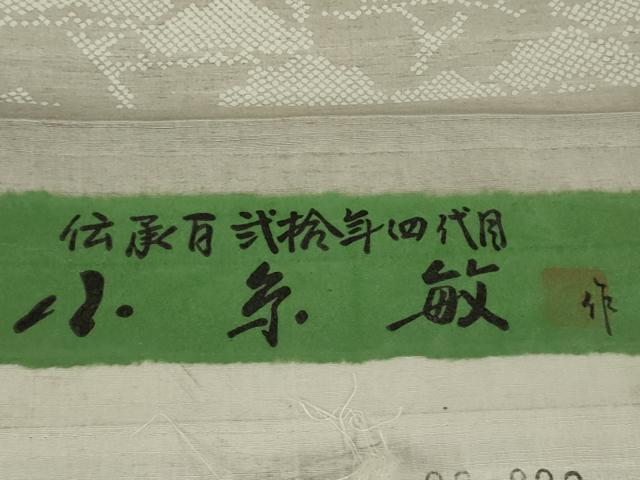 伝承百弐拾年四代目
小糸敏作